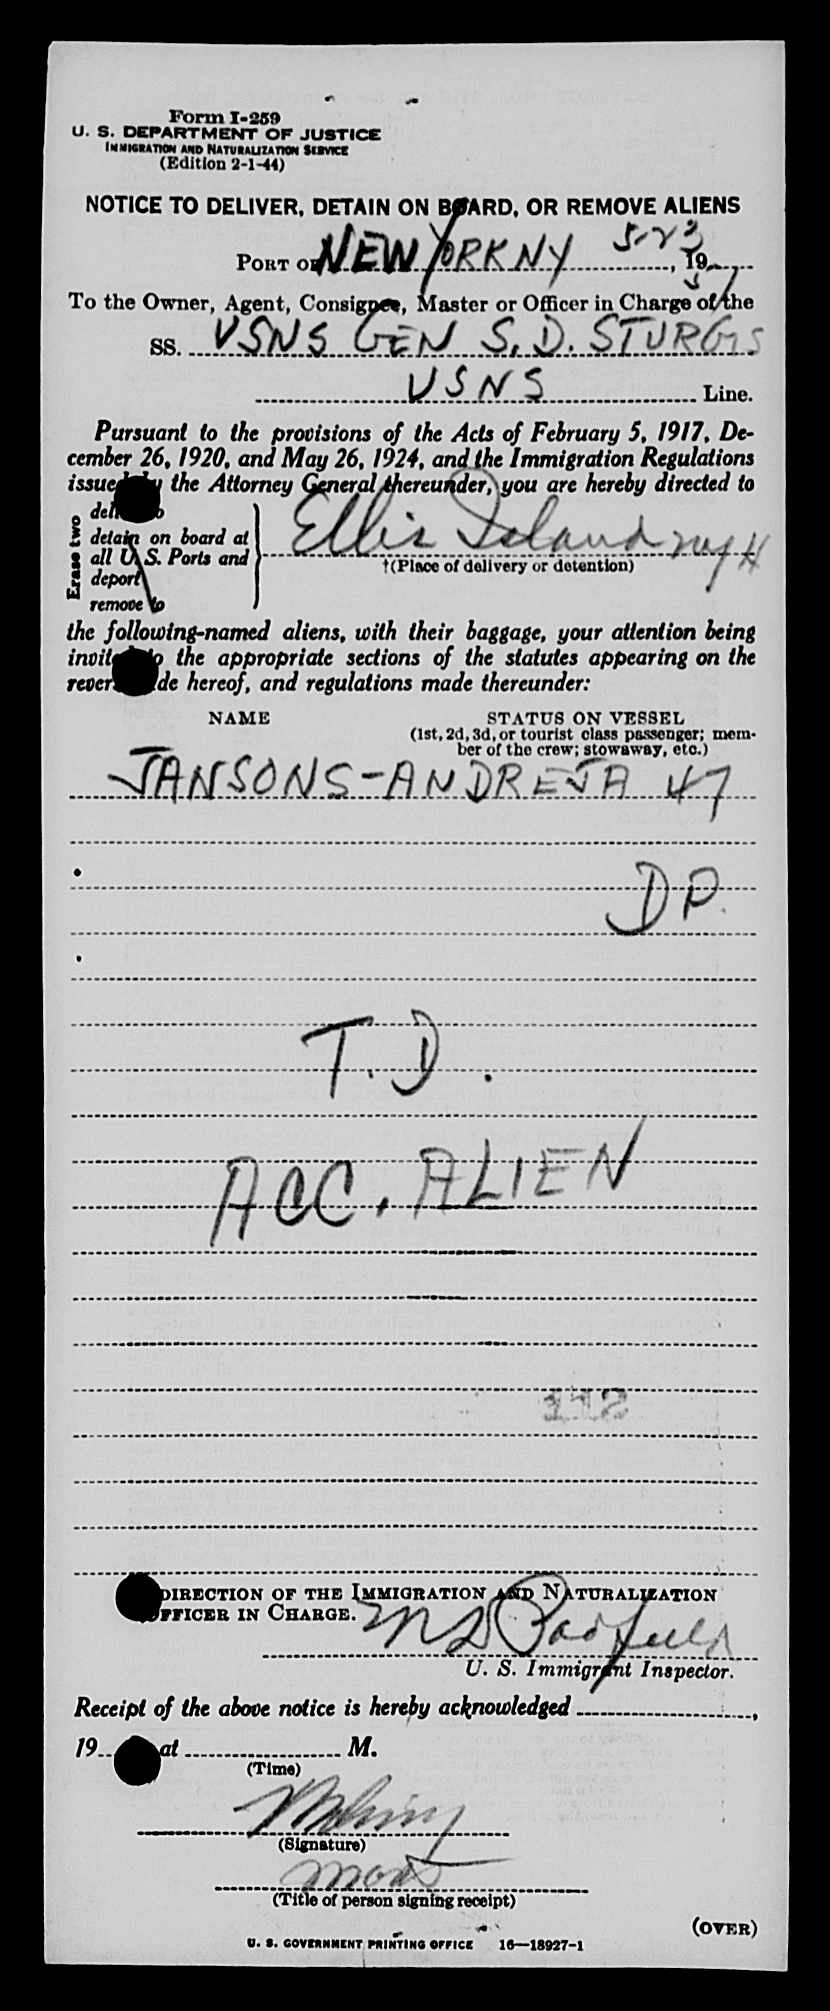 Form I-259
U. S. DEPARTMENT OF JUSTICE
IMMIGRATION AND NATURALIZATION SERVICE
(Edition 2-1-44)
NOTICE TO DELIVER, DETAIN ON BOARD, OR REMOVE ALIENS
PORT OF NEW YORK NY 5-23, 1951
To the Owner, Agent, Consignee, Master or Officer in Charge of the
SS. USNS GEN S. D. STURGIS
USNS Line.
Pursuant to the provisions of the Acts of February 5, 1917, De-
cember 26, 1920, and May 26, 1924, and the Immigration Regulations
issued by the Attorney General thereunder, you are hereby directed to
Erase two
deliver to
detain on board at
all U. S. Ports and
deport
remove to
Ellis Island NY H
†(Place of delivery or detention)
the following-named aliens, with their baggage, your attention being
invited to the appropriate sections of the statutes appearing on the
reverse side hereof, and regulations made thereunder:
NAME STATUS ON VESSEL
(1st, 2d, 3d, or tourist class passenger; mem-
ber of the crew; stowaway, etc.)
JANSONS-ANDREJA 47
DP.
T. D.
ACC. ALIEN
112
DIRECTION OF THE IMMIGRATION AND NATURALIZATION
OFFICER IN CHARGE.
U. S. Immigrant Inspector.
Receipt of the above notice is hereby acknowledged ,
19 at M.
(Time)
(Signature)
(Title of person signing receipt)
(OVER)
U. S. GOVERNMENT PRINTING OFFICE 16—18927-1